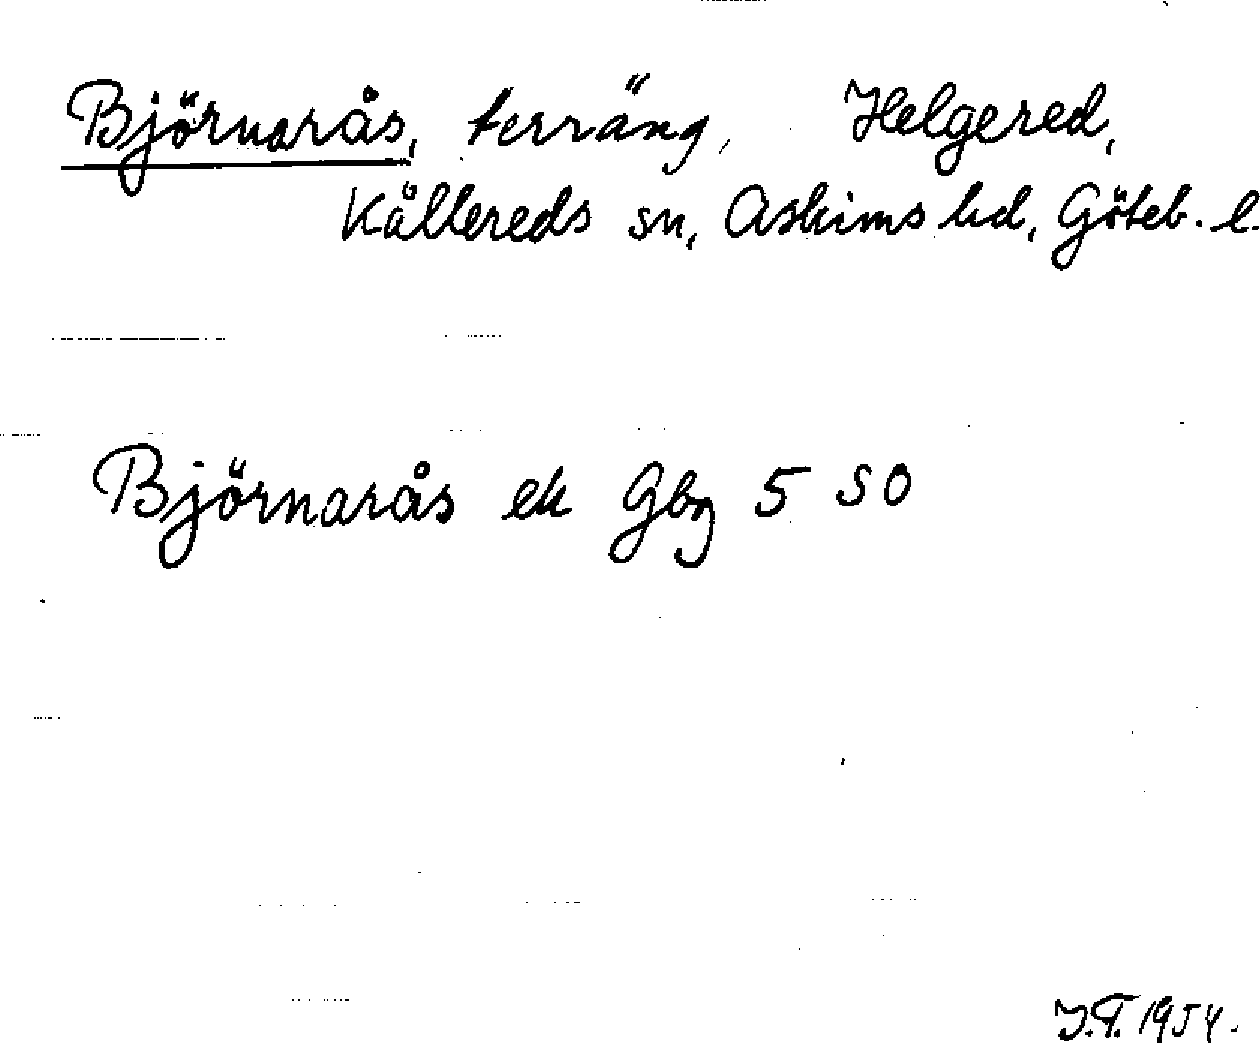 Björnarås, terräng, Helgered,
Kållereds sn, Askims hd, Göteb. l.
Björnarås ek Gbg 5 SO
J.T. 1954.